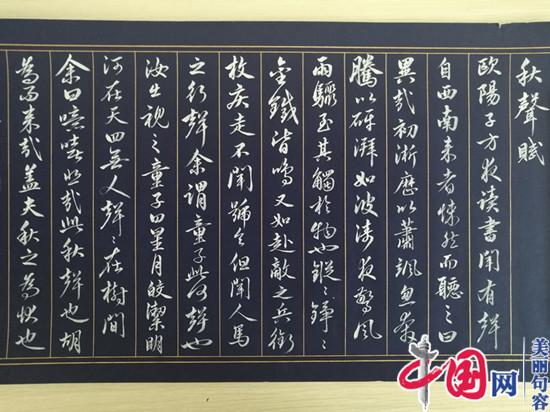 秋聲賦
歐陽子方夜讀書聞有聲
自西南來者悚然而聽之曰
異哉初淅瀝以蕭颯忽奔
騰以砰湃如波濤夜驚風
雨驟至其觸於物也鏦〻錚〻
金鐵皆鳴又如赴敵之兵銜
枚疾走不聞號令但聞人馬
之行聲余謂童子此何聲也
汝出視之童子曰星月皎潔明
河在天四無人聲〻在樹間
余曰噫嘻悲哉此秋聲也胡
為而來哉蓋夫秋之為狀也
中国网
美丽句容